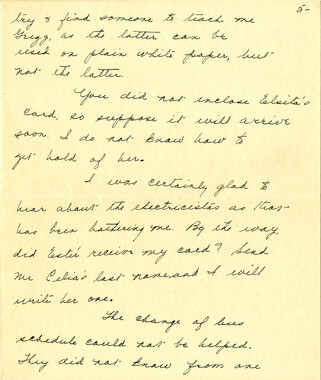 5-
try & find someone to teach me
Gregg, as the latter can be
used on plain white paper, but
not the latter.
You did not inclose Elsita's
card, so suppose it will arrive
soon. I do not know how to
get hold of her.
I was certainly glad to
hear about the electricistas as that
has been bothering me. By the way,
did Ester recieve my card? Send
me Celia's last name and I will
write her one.
The change of bus
schedule could not be helped.
They did not know from one